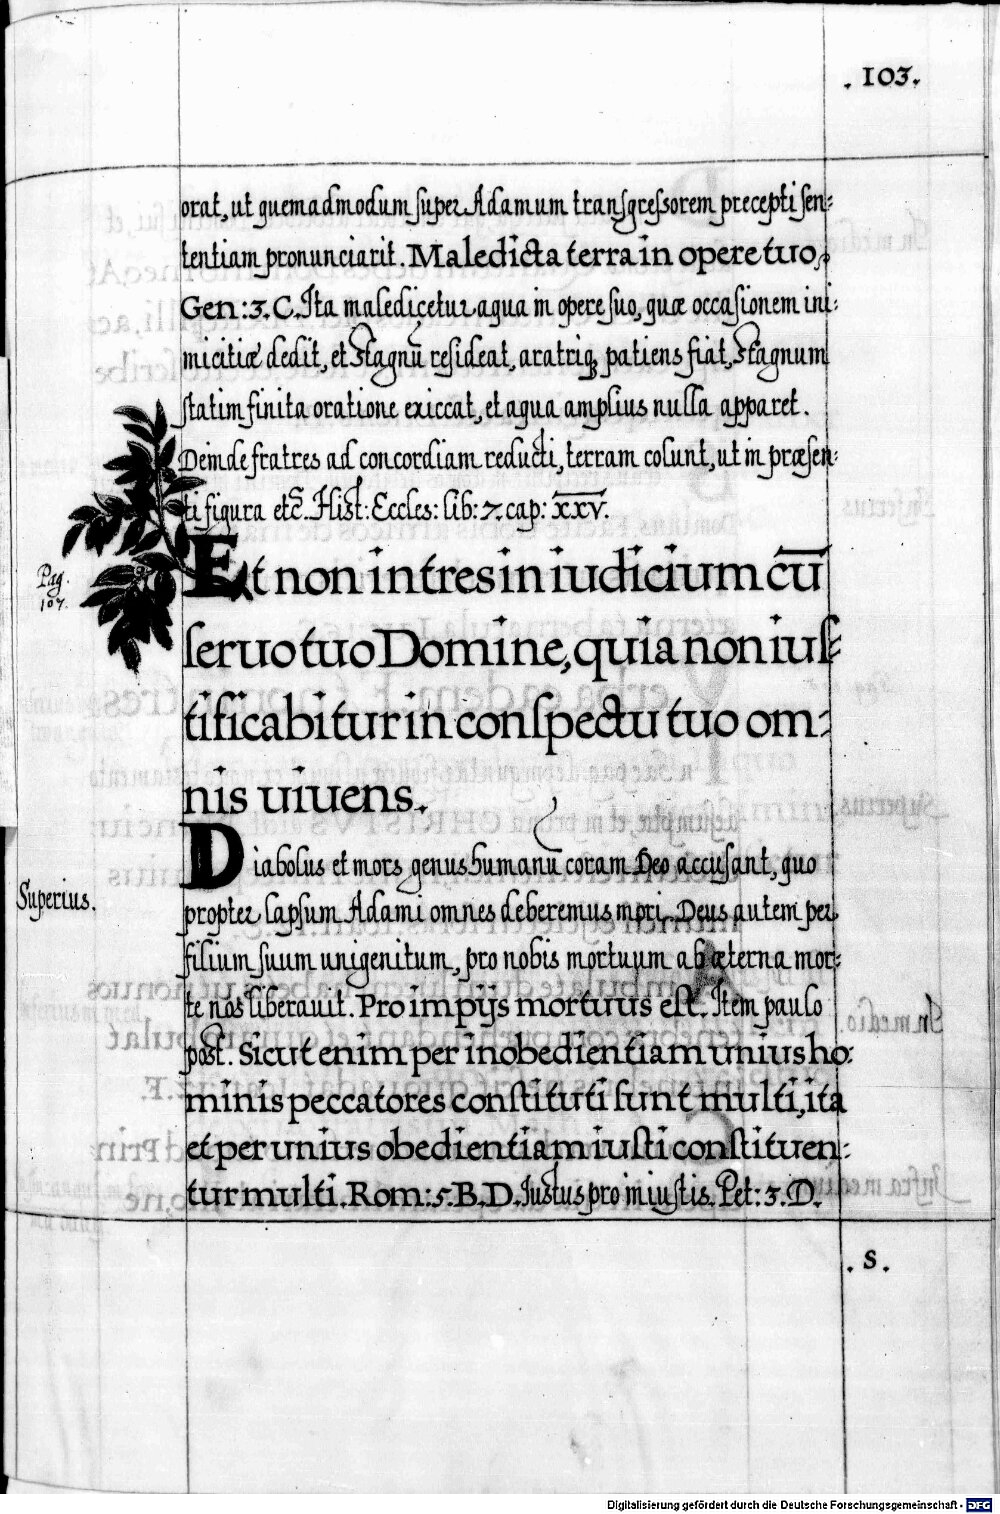 . 103.
orat, ut quemadmodum super Adamum transgressorem precepti sen-
tentiam pronunciarit. Maledicta terra in opere tuo,
Gen: 3. C. Ita maledicetur aqua in opere suo, quæ occasionem ini-
micitiæ dedit, et Stagnū resideat, aratriq; patiens fiat, Stagnum
statim finita oratione exiccat, et aqua amplius nulla apparet.
Deinde fratres ad concordiam reducti, terram colunt, ut in præsen-
ti figura etc̄. Hist: Eccles: lib: 7. cap: XXV.
Pag.
107.
Et non intres in iudicium cū
seruo tuo Domine, quia non ius-
tificabitur in conspectu tuo om-
nis viuens.
Superius.
Diabolus et mors genus humanū coram Deo accusant, quo
propter lapsum Adami omnes deberemus mori. Deus autem per
filium suum unigenitum, pro nobis mortuum ab æterna mor-
te nos liberauit. Pro impijs mortuus est. Item paulo
post. Sicut enim per inobedientiam unius ho-
minis peccatores constituti sunt multi, ita
et per unius obedientiam iusti constituen-
tur multi. Rom: 5. B. D. Iustus pro iniustis. Pet: 3. D.
. S .
Digitalisierung gefördert durch die Deutsche Forschungsgemeinschaft - DFG